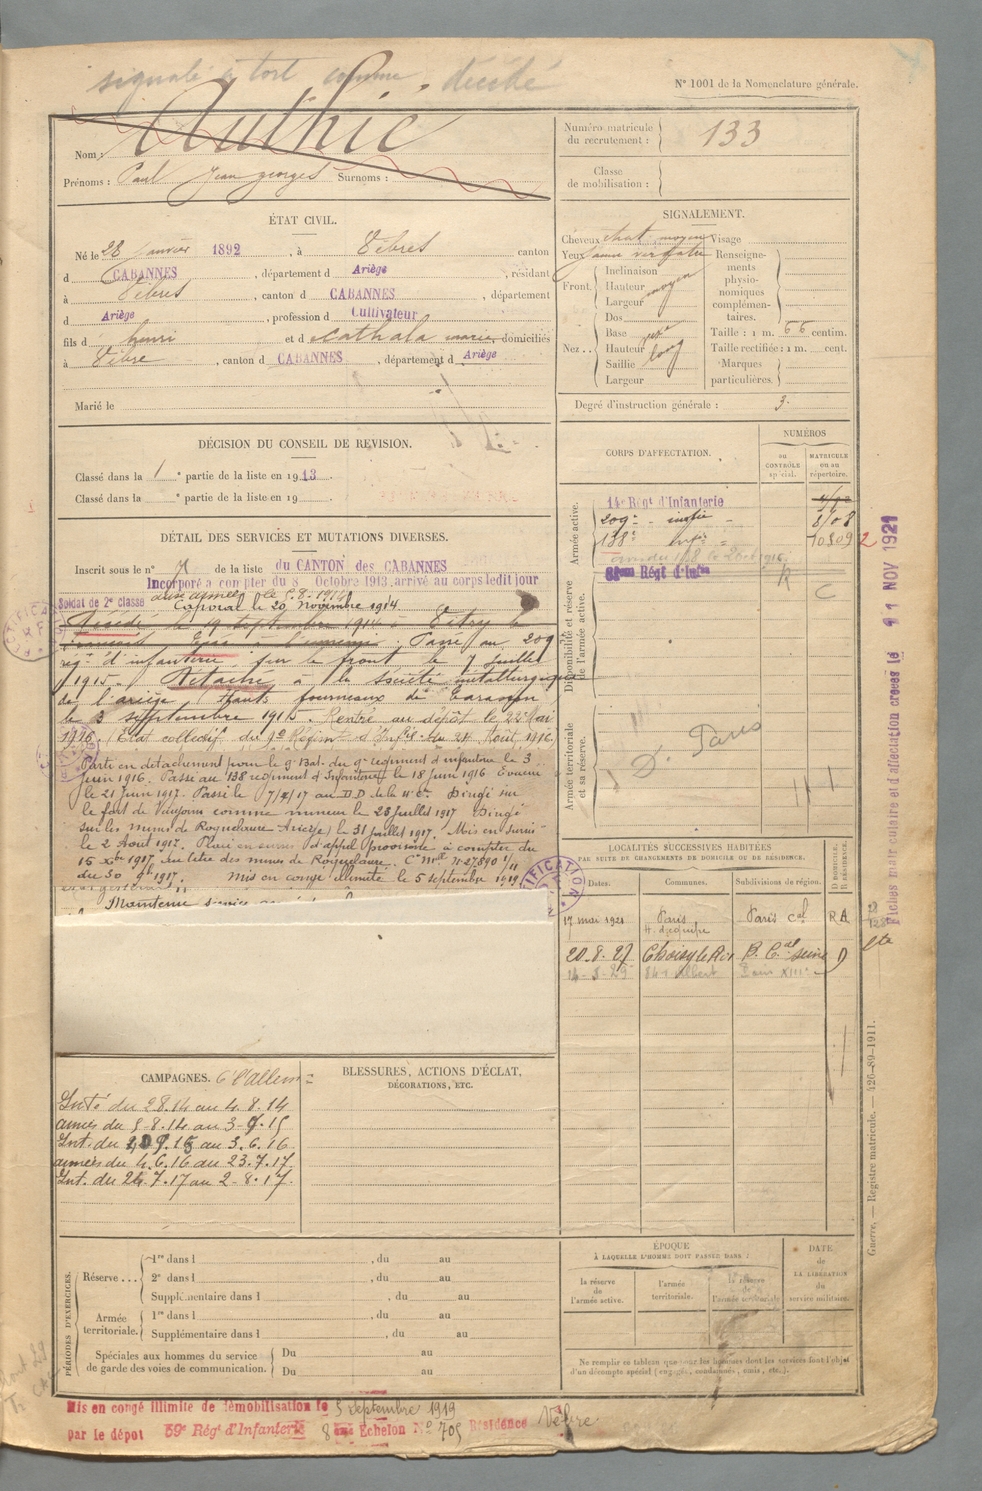 signalé à tort comme décédé
N° 1001 de la Nomenclature générale.
Nom : Authié
Prénoms : Paul Jean georges Surnoms :
Numéro matricule du recrutement : 133
Classe de mobilisation :
ÉTAT CIVIL.
Né le 28 Janvier 1892, à Vèbres canton
d CABANNES, département d Ariège, résidant
à Vèbres, canton d CABANNES, département
d Ariège, profession d Cultivateur
fils d henri et d cathala marie, domiciliés
à Vèbre, canton d CABANNES, département d Ariège
Marié le
SIGNALEMENT.
Cheveux chat. moyen Visage
Yeux
Front
Inclinaison
Hauteur moyen
Largeur
Nez
Dos
Base
Hauteur
Saillie long
Largeur
Renseignements physionomiques complémentaires.
Taille : 1 m. 66 centim.
Taille rectifiée : 1 m. cent.
Marques particulières.
Degré d'instruction générale : 3.
DÉCISION DU CONSEIL DE REVISION.
Classé dans la 1 e partie de la liste en 1913.
Classé dans la e partie de la liste en 19
DÉTAIL DES SERVICES ET MUTATIONS DIVERSES.
Inscrit sous le n° 7 de la liste du CANTON des CABANNES
Incorporé a compter du 8 Octobre 1913, arrivé au corps ledit jour
Soldat de 2e classe aux armées le 5-8-1914
Caporal le 20 novembre 1914
Décédé le 19 septembre 1914 à Vitry le
Passé au 209
rég. d'infanterie, sur le front le 7 Juillet
1915. Détaché à la Société métallurgique
de l'ariège (Hauts fourneaux de Tarascon)
le 3 septembre 1915. Rentré au dépôt le 22 Mai
1916. (Etat collectif du 9e Régiment d'Infie du 24 Août 1916)
Parti en détachement pour le 9e Bat. du 9e régiment d'infanterie le 3
juin 1916. Passé au 138 régiment d'Infanterie le 18 juin 1916 Evacué
le 21 juin 1917. Passé le 7/7/17 au D.D. de la 4e Cie. Dirigé sur
le fort de Vaujours comme mineur le 23 juillet 1917 Dirigé
sur les mines de Roquelaure-Ariège) le 31 juillet 1917. Mis en sursis
le 2 Août 1917. Placé en sursis d'appel provisoire à compter du
16 Xbre 1917 au titre des mines de Roquelaure. C. Mlle N° 27890 1/11
du 30 9bre 1917. Mis en congé illimité le 5 septembre 1919
Maintenu service
CORPS D'AFFECTATION.
NUMÉROS
au CONTRÔLE spécial.
MATRICULE ou au répertoire.
Armée active.
14e Régt d'Infanterie
209e - infie - 8108
138e Infie - 10309 2
Régt d'Infie
R C
Disponibilité et réserve de l'armée active.
Armée territoriale et sa réserve.
D. Paris
Fiches matriculaire et d'affectation créées le 11 NOV 1921
LOCALITÉS SUCCESSIVES HABITÉES
PAR SUITE DE CHANGEMENTS DE DOMICILE OU DE RÉSIDENCE.
Dates. Communes. Subdivisions de région. D DOMICILE. R RÉSIDENCE.
17 mai 1921 Paris Paris cal RA
20.8.27 Choisy le Roi B. Cal Seine D
CAMPAGNES. C l'allemgne
Inté du 2.8.14 au 4.8.14
armées du 5-8-14 au 3-9-15
Int. du 4.9.15 au 3.6.16
armées du 4.6.16 au 23.7.17.
Int. du 24.7.17 au 2-8.17.
BLESSURES, ACTIONS D'ÉCLAT,
DÉCORATIONS, ETC.
PÉRIODES D'EXERCICES.
Réserve ...
1re dans l , du au
2e dans l , du au
Supplémentaire dans l , du au
Armée territoriale.
1re dans l , du au
Supplémentaire dans l , du au
Spéciales aux hommes du service de garde des voies de communication.
Du au
Du au
ÉPOQUE
À LAQUELLE L'HOMME DOIT PASSER DANS :
la réserve de l'armée active.
l'armée territoriale.
la réserve de l'armée territoriale
DATE de LA LIBÉRATION du service militaire.
Ne remplir ce tableau que pour les hommes dont les services font l'objet
d'un décompte spécial (engagés, condamnés, omis, etc.).
Guerre. — Registre matricule. — 426-89-1911.
Mis en congé illimité de démobilisation le 5 septembre 1919
par le dépot 59e Rég. d'Infanterie 8 ème Echelon N° 705 Résidence Vèbre